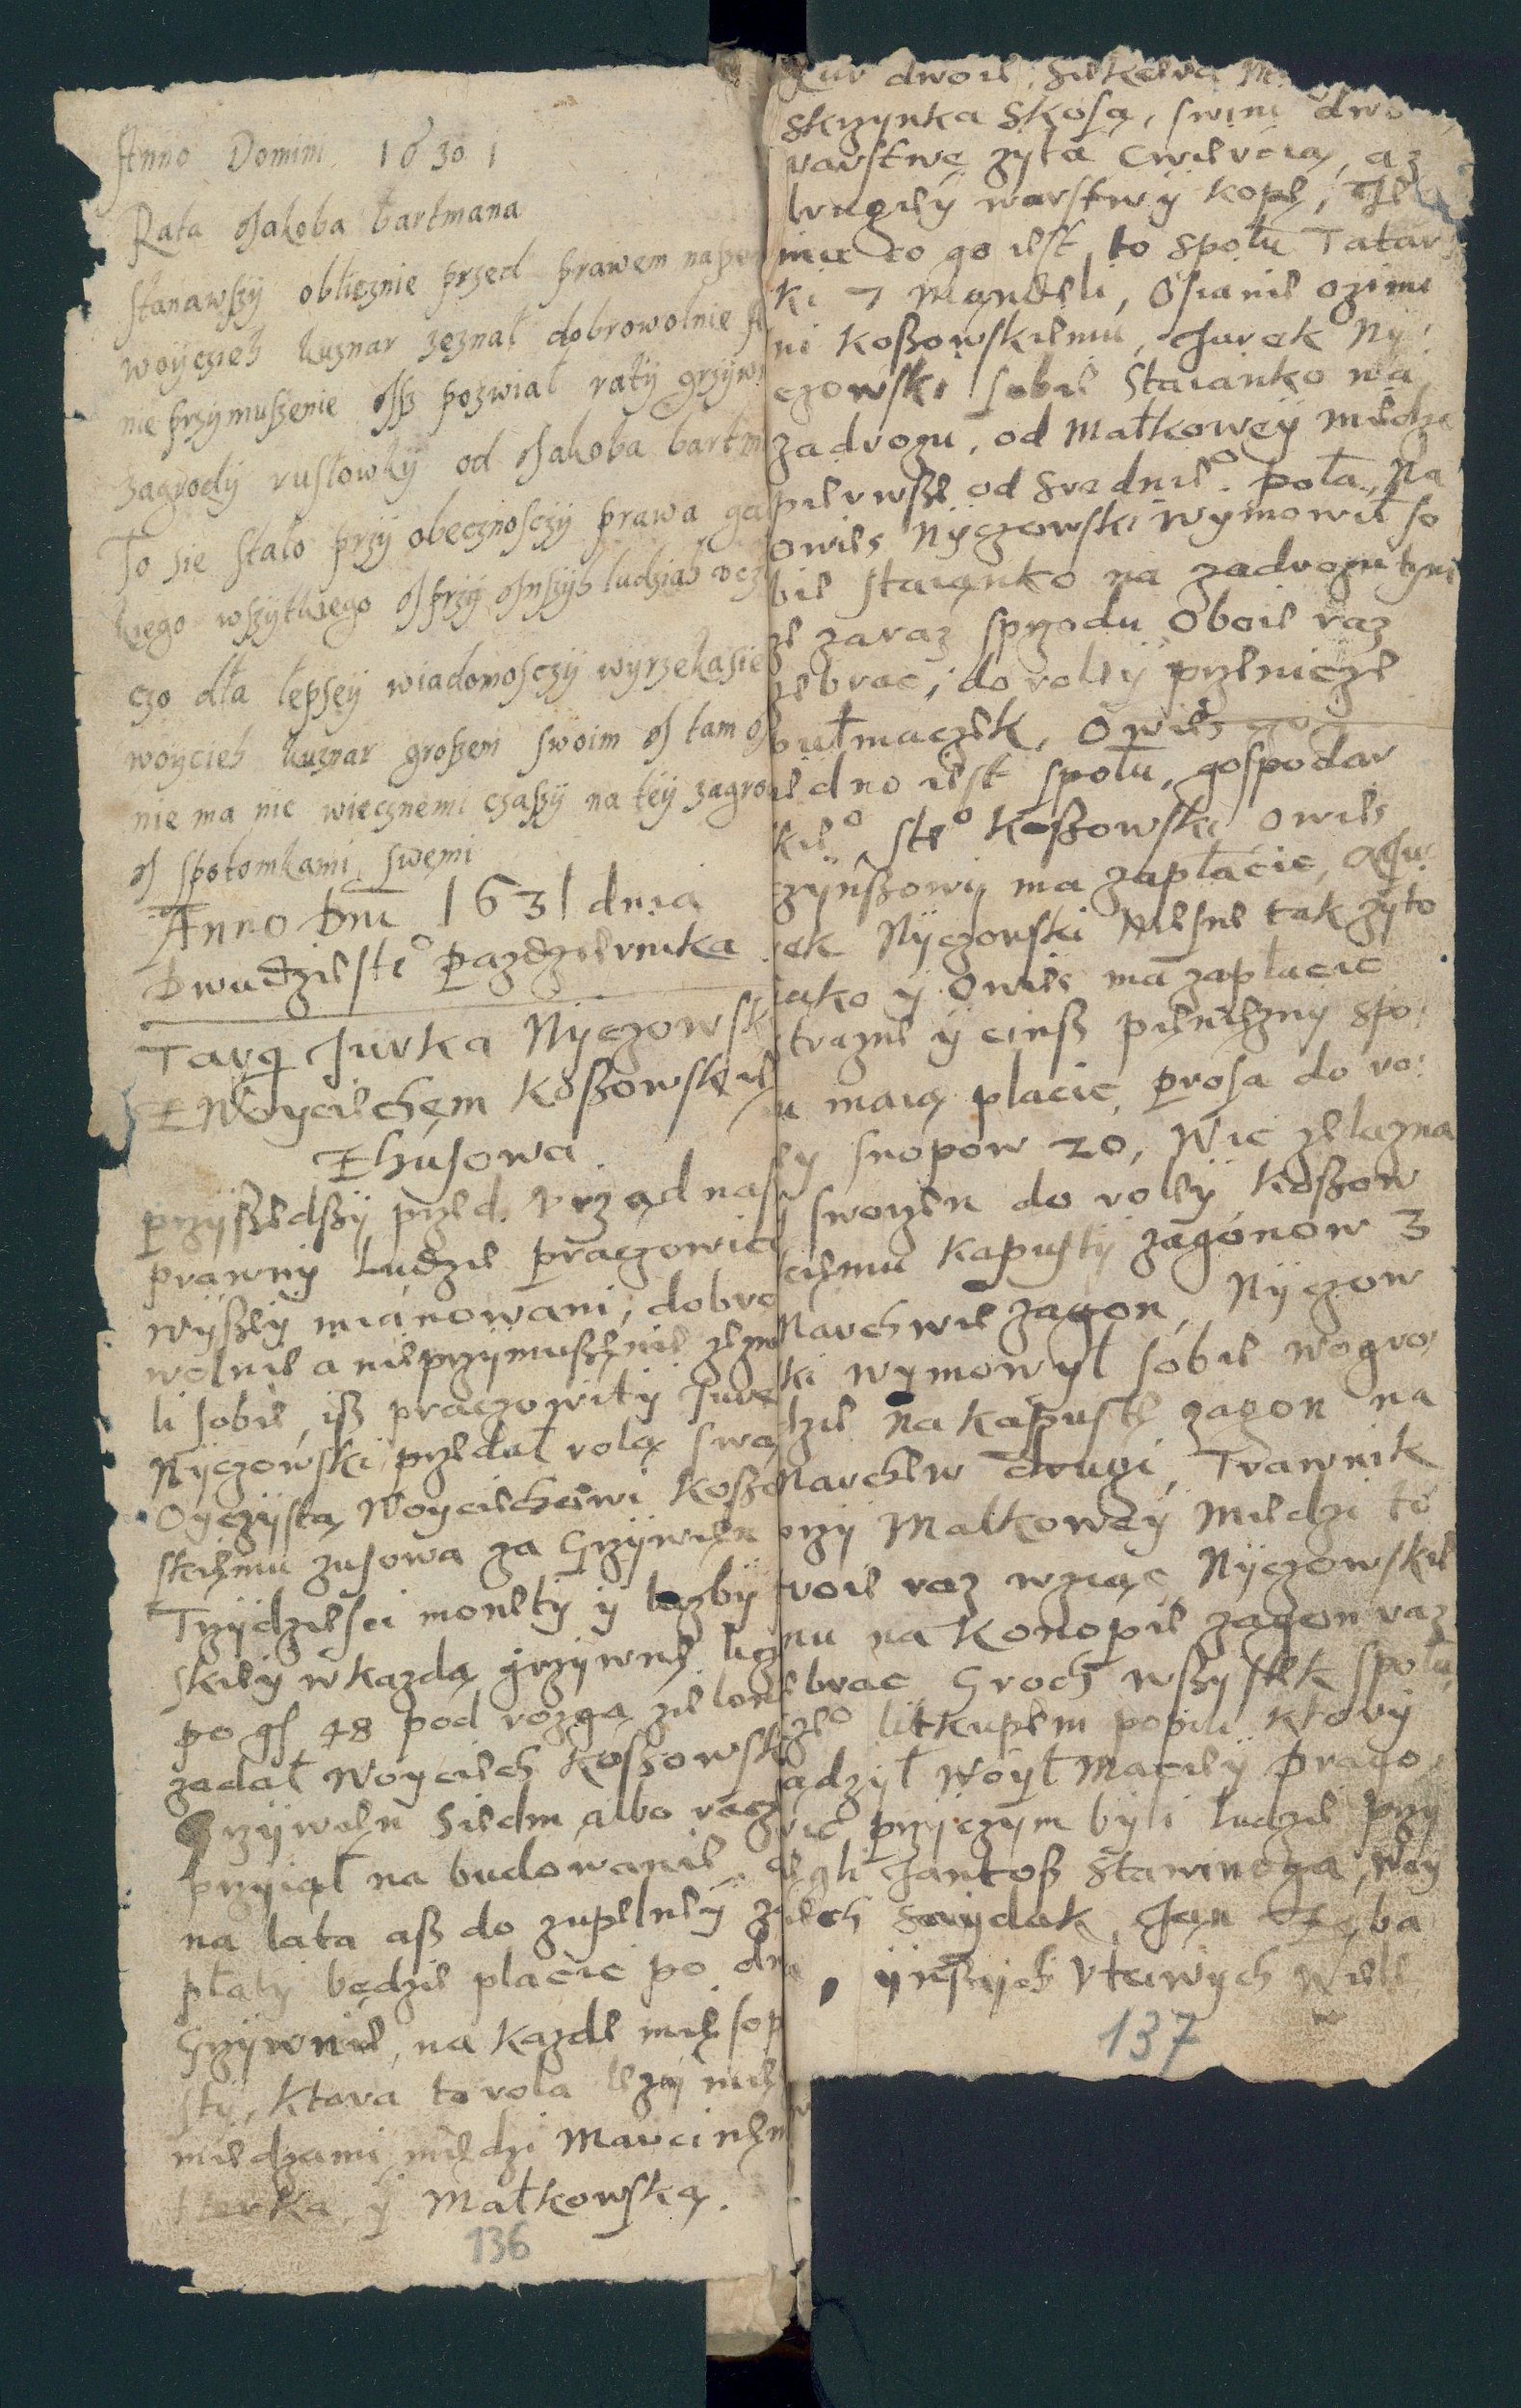 Anno Domini 1630 1
Rata Jakoba bartmana
stanawszÿ oblicznie przed prawem
woÿczieh kusnar zeznał dobrowolnie
nie przymuszenie ÿsz pozwiał ratÿ
zagrodÿ rusłowkÿ od Jakoba
To sie stało przÿ obecznosczÿ prawa
kiego wszÿtkiego J przÿ Jnszÿh ludziah
czo dła łepseÿ wiadomosczÿ wyrzekasie
woycieh kusnar groszem swoim J tam
nie ma nic wiecznemi czaszÿ na teÿ
J spotomkami swemi
Anno Dni 1631 dnia
Dwudzieste° pazdziernika
Targ Jurka Nÿczowsk
Z Woyciechem Koszowskie
Zhusowa
przÿszedszÿ przed Vrząd nas
prawnÿ Ludzie praczowici
wÿszeÿ mianowani, dobro
wolnie a nieprzÿmuszenie
li sobie, isz praczowitÿ Jure
Nÿczowski przedał rolą swą
Oyczÿstą Woyciechowi Koszo
skiemu zusowa za Grzÿwien
Trzÿdziesci monetÿ ÿ liczbÿ
skieÿ w kazdą grzÿwnę licz
po gſ 48 pod rozgą zielon
zadał Woyciech Koszowsk
Grzÿwien siedm albo racz
przyiął na budowanie,
na lata asz do zupełneÿ za
płatÿ będzie płacic po
Grzÿwnie, na kazde
stÿ, ktora to rola lezÿ
miedzami miedzi Marcinem
y Małkowską.
136
dwoie,
skrzynka skosą, swini dwo
warstwę zyta cwiercią, az
drugieÿ warstwÿ kopę,
mie co go iest, to społu Tatar
ki 7 Mandeli, Osianie ozimi
ni Koszowskiemu, Jurek Nÿ
czowski sobie Staianko na
zadrozu, od Małkoweÿ miedze
pierwsze od srednie° pola, Na
owies Nÿczowski wymowił so
bie staianko na zadrozu
ze zaraz sprzodu Oboie raz
zebrac, do roleÿ pszenicze
połmaczek, Owies
iedno iest społu, gospodar
skie° ste° Koszowski owies
czÿnszowÿ ma zapłacic, Ju
rek Nÿczowski Miesne tak zÿto
iako ÿ Owies ma zapłacic
strazne ÿ cinsz pieniezny spo
łu maią placic, prosa do ro
leÿ snopow 20, Nic zelazna
sworzen do roleÿ Koszow
skiemu kapustÿ zagonow 3
Marchwie zagon, Nÿczow
ski wymowył sobie wogro
dzie na kapustę zagon na
Marchew drugi, Trawnik
przÿ Małkoweÿ Miedzi to
troie raz wziąc Nÿczowskie
mu na Konopie zagon raz
zebrac Groch wszÿstek społu
litkupem popili ktorÿ
sadzył Woyt Macieÿ praco
wic przÿczym byli Ludzie przy
legli Jantosz Stawinoga, Woy
ciech Saÿdak, Jan Zęba
ÿ inszÿch Vtciwych Wiele
137